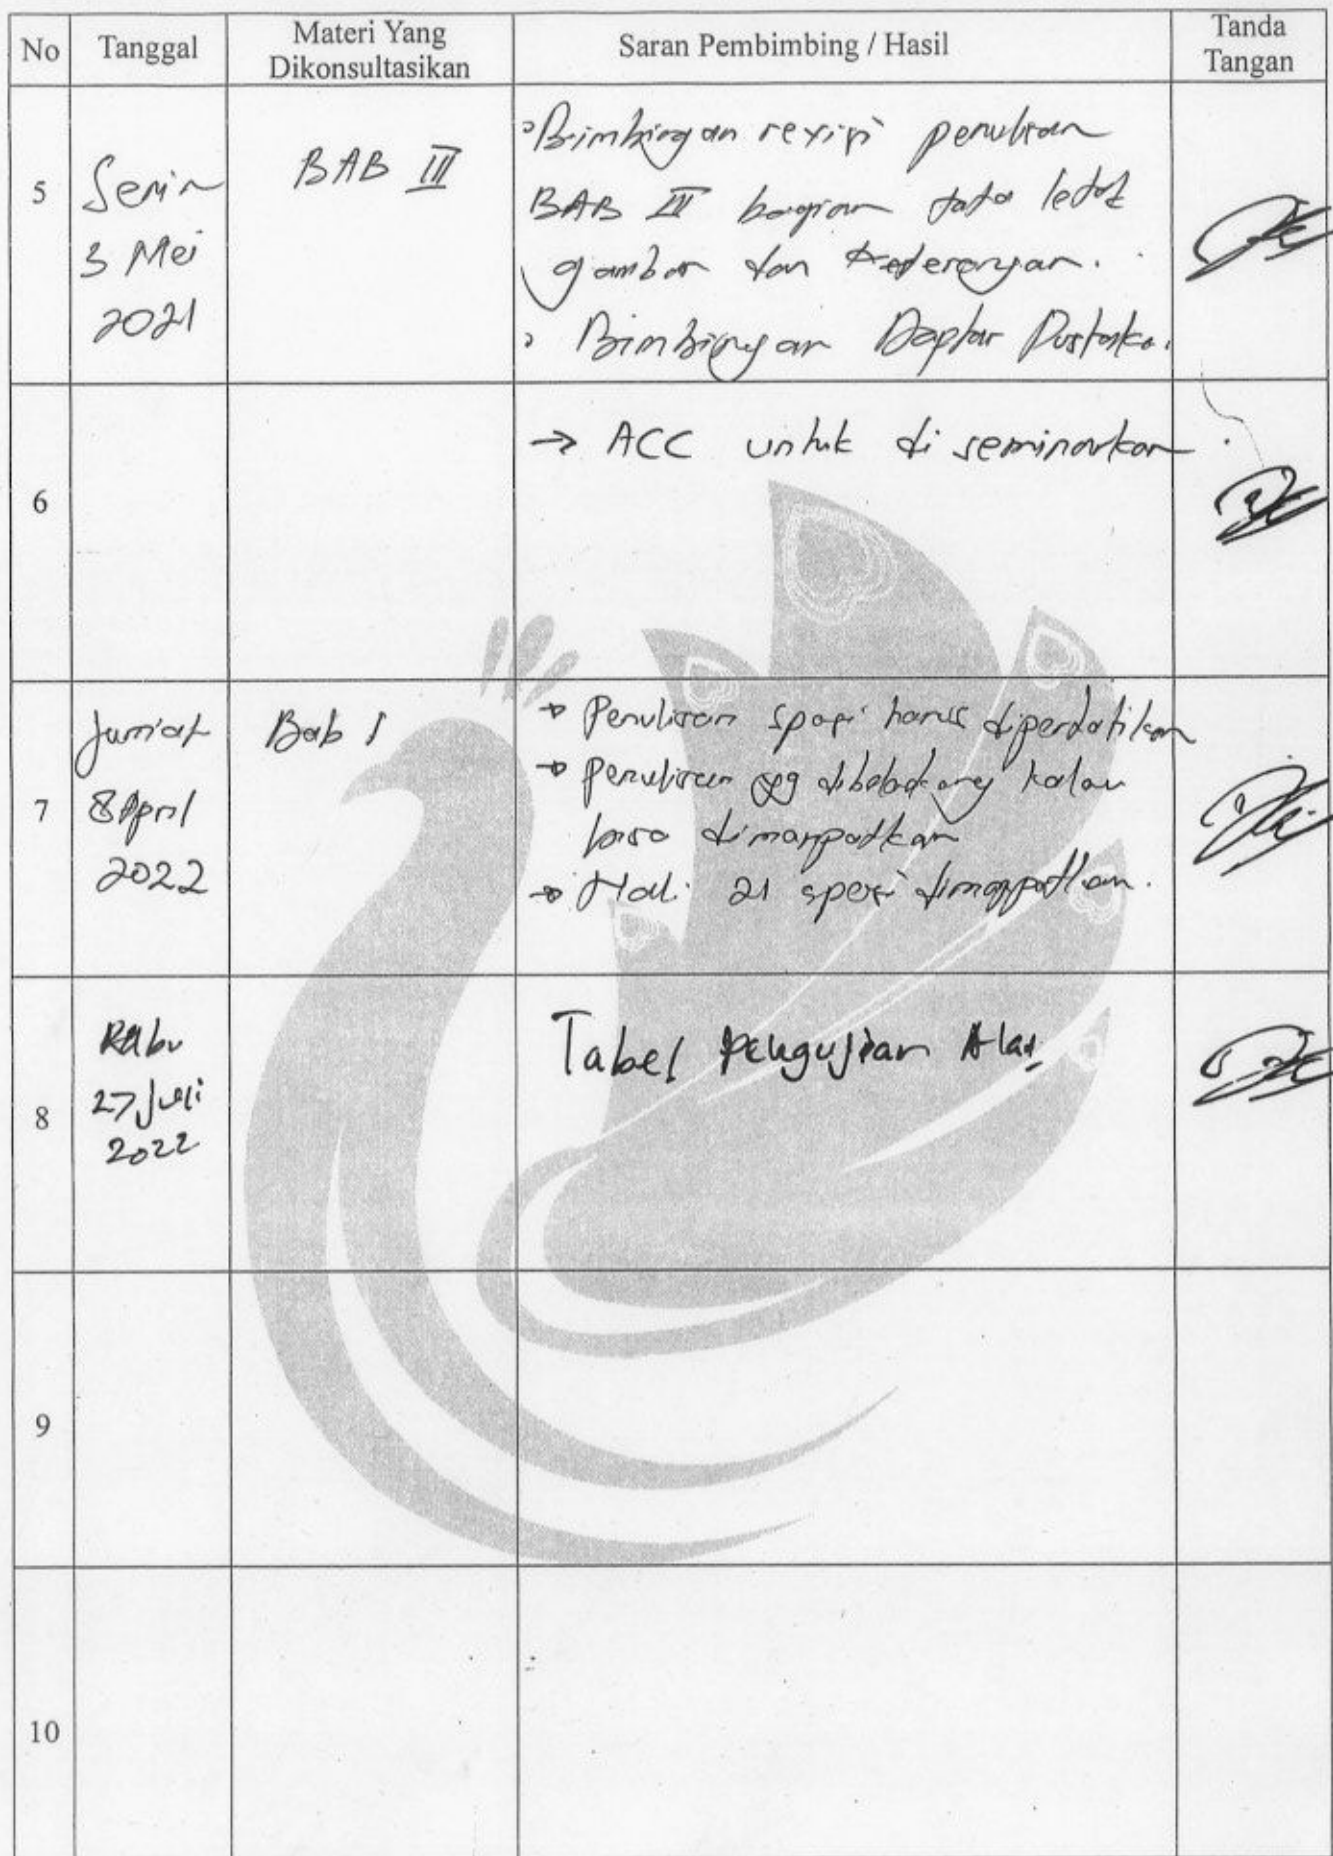 No Tanggal Materi Yang Dikonsultasikan Saran Pembimbing / Hasil Tanda Tangan
5
Senin
3 Mei
2021
BAB III
Bimbingan revisi penulisan
BAB III bagian tata letak
gambar dan keterangan.
Bimbingan Daptar Pustaka.
6
→ ACC untuk di seminarkan
7
Jum'at
8 April
2022
Bab I
→ Penulisan spasi harus diperhatikan
→ penulisan yg dibelakang kalau
bisa dimanpatkan
→ Hal. 21 spasi dimanpatkan.
8
Rabu
27 Juli
2022
Tabel Pengujian Alat
9
10